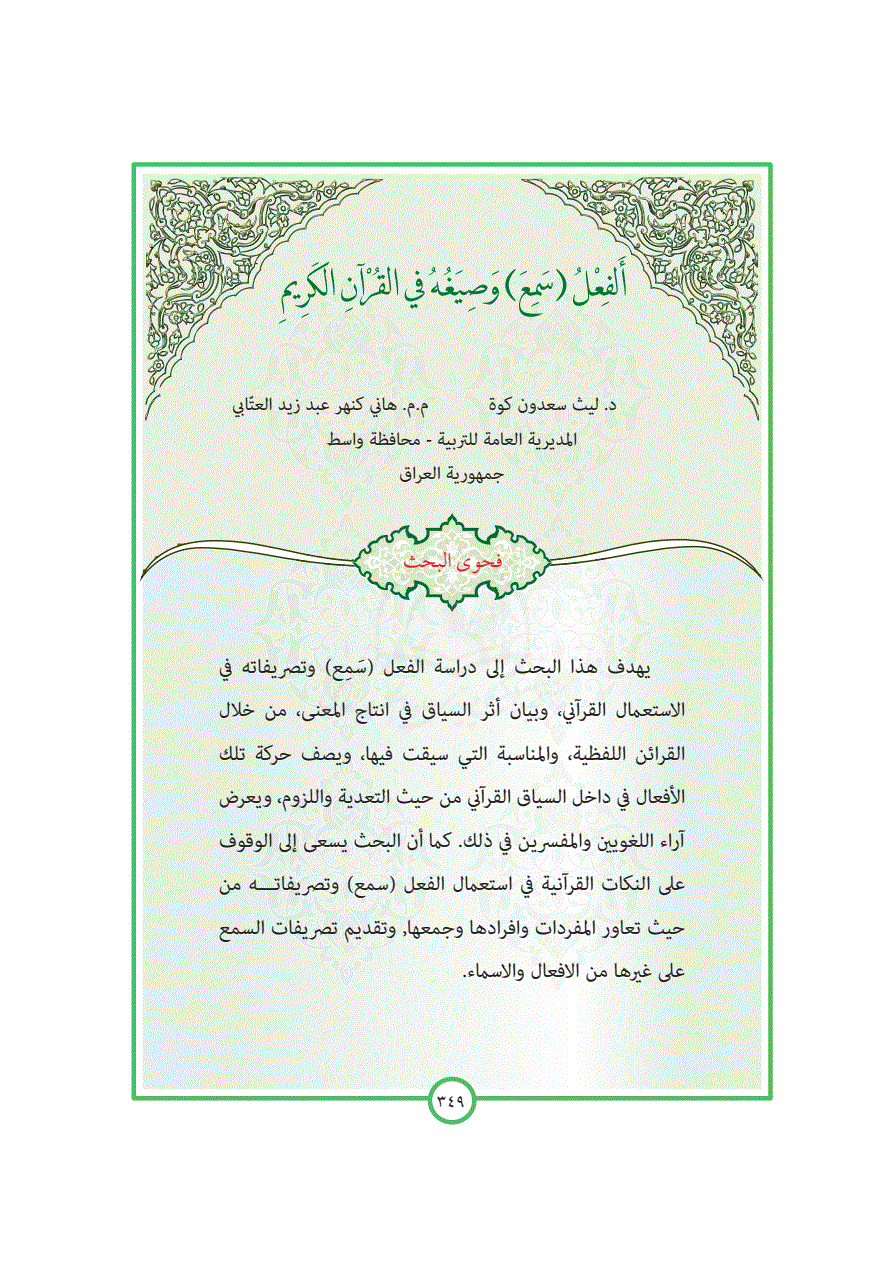 أَلفِعْلُ (سَمِعَ) وَصِيَغُهُ فِي القُرْآنِ الكَرِيمِ
د. ليث سعدون كوة م.م. هاني كنهر عبد زيد العتّابي
المديرية العامة للتربية - محافظة واسط
جمهورية العراق
فحوى البحث
يهدف هذا البحث إلى دراسة الفعل (سَمِع) وتصريفاته في
الاستعمال القرآني، وبيان أثر السياق في انتاج المعنى، من خلال
القرائن اللفظية، والمناسبة التي سيقت فيها، ويصف حركة تلك
الأفعال في داخل السياق القرآني من حيث التعدية واللزوم، ويعرض
آراء اللغويين والمفسرين في ذلك. كما أن البحث يسعى إلى الوقوف
على النكات القرآنية في استعمال الفعل (سمع) وتصريفاتـــه من
حيث تعاور المفردات وافرادها وجمعها, وتقديم تصريفات السمع
على غيرها من الافعال والاسماء.
٣٤٩